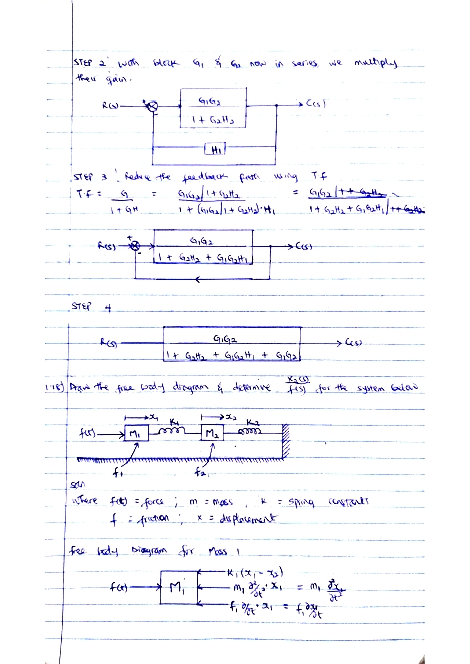 STEP 2 : with block G1 & G2 now in series we multiply
their gain.
R(s) + G1G2 C(s)
1 + G2H2
H1
STEP 3 : Reduce the feedback path using Tf
Tf = G = G1G2/1+G2H2 = G1G2/1+G2H2
1 + GH 1 + (G1G2/1+G2H2)·H1 1+G2H2+G1G2H1/1+G2H2
R(s) + G1G2 C(s)
- 1 + G2H2 + G1G2H1
STEP 4
R(s) G1G2 C(s)
1 + G2H2 + G1G2H1 + G1G2
1.18) Draw the free body diagram & determine X2(s)/f(s) for the system below
x1 K1 x2 K2
f(t) M1 M2
f1 f2
soln
where f(t) = force ; m = mass , K = spring constant
f = friction ; x = displacement
free body Diagram for Mass 1
K1(x1 - x2)
f(t) M1 m1 ∂²/∂t² · x1 = m1 ∂²x1/∂t²
f1 ∂/∂t · x1 = f1 ∂x1/∂t